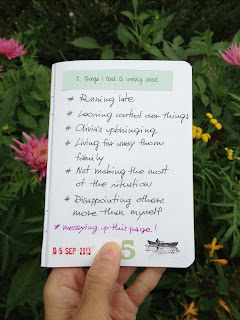 5. Things I tend to worry about
* Running late
* Leaving control over things
* Olivia's upbringing
* Living far away from
family
* Not making the most
of the situation
* Disappointing others
more than myself
* messying up this page!
05 SEP 2013
5